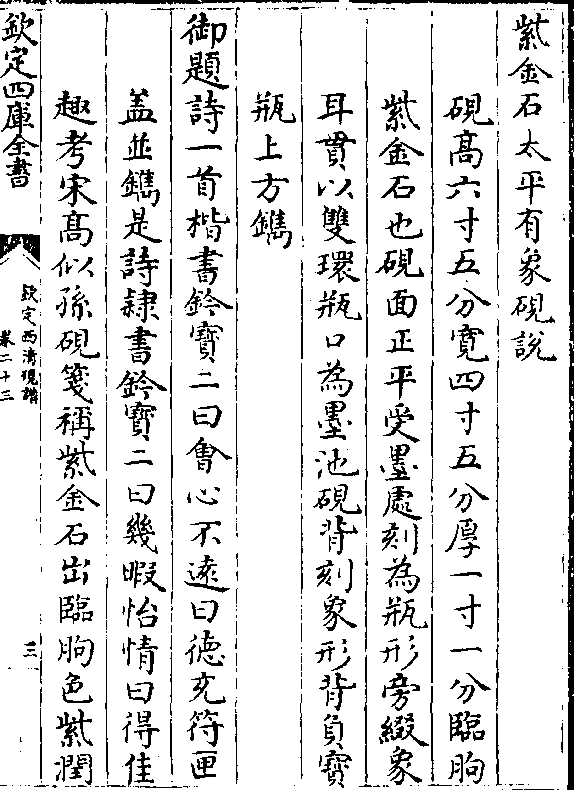 紫金石太平有象硯說
硯髙六寸五分寛四寸五分厚一寸一分臨朐
紫金石也硯面正平受墨處刻為瓶形旁綴象
耳貫以雙環瓶口為墨池硯背刻象形背負寶
瓶上方鐫
御題詩一首楷書鈐寳二曰㑹心不逺曰德充符匣
盖並鐫是詩隷書鈐寳二曰幾暇怡情曰得佳
趣考宋髙似孫硯箋稱紫金石出臨朐色紫潤
欽定四庫全書
欽定西清硯譜
卷二十三
三